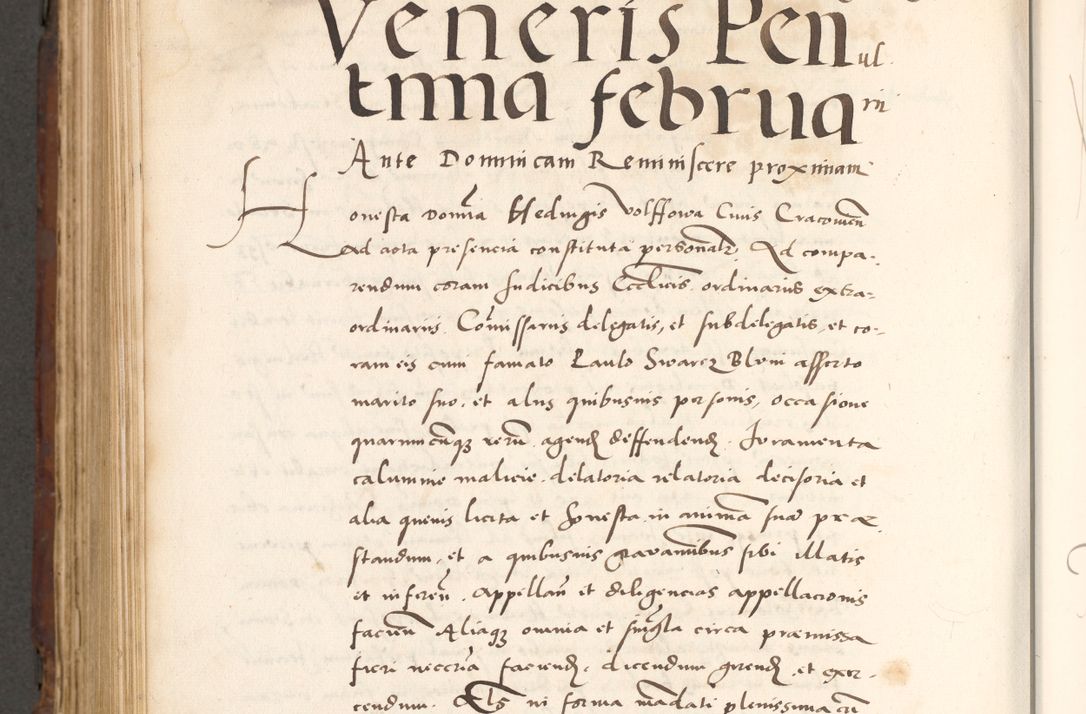 Veneris Penul
tima februarii
Ante Dominicam Reminiscere proximam
Honesta Domina Hedvigis Volffowa Civis Cracovien
ad acta presencia constituta personalr. Ad compa-
rendum coram Judicibus Eccliēis ordinariis extra-
ordinariis, Comissariis delegatis, et subdelegatis, et co-
ram eis cum famato Paulo Swarcz Blein asserto
marito suo, et aliis quibusvis personis, occasione
quarumcūq3 rerū agend deffendend. Joramenta
calumnie malicie, delatoria relatoria decisoria et
alia quevis licita et honesta in animā suā præ-
standum, et a quibusvis gravaminibus sibi illatis
et inferen. Appellan et diligencias appellacionis
facien Aliaq3 omnia et singla circa præmissa
fieri neccria faciend, dicendum gerend, et exer-
cendum. Etc in forma mādati plenissima cū